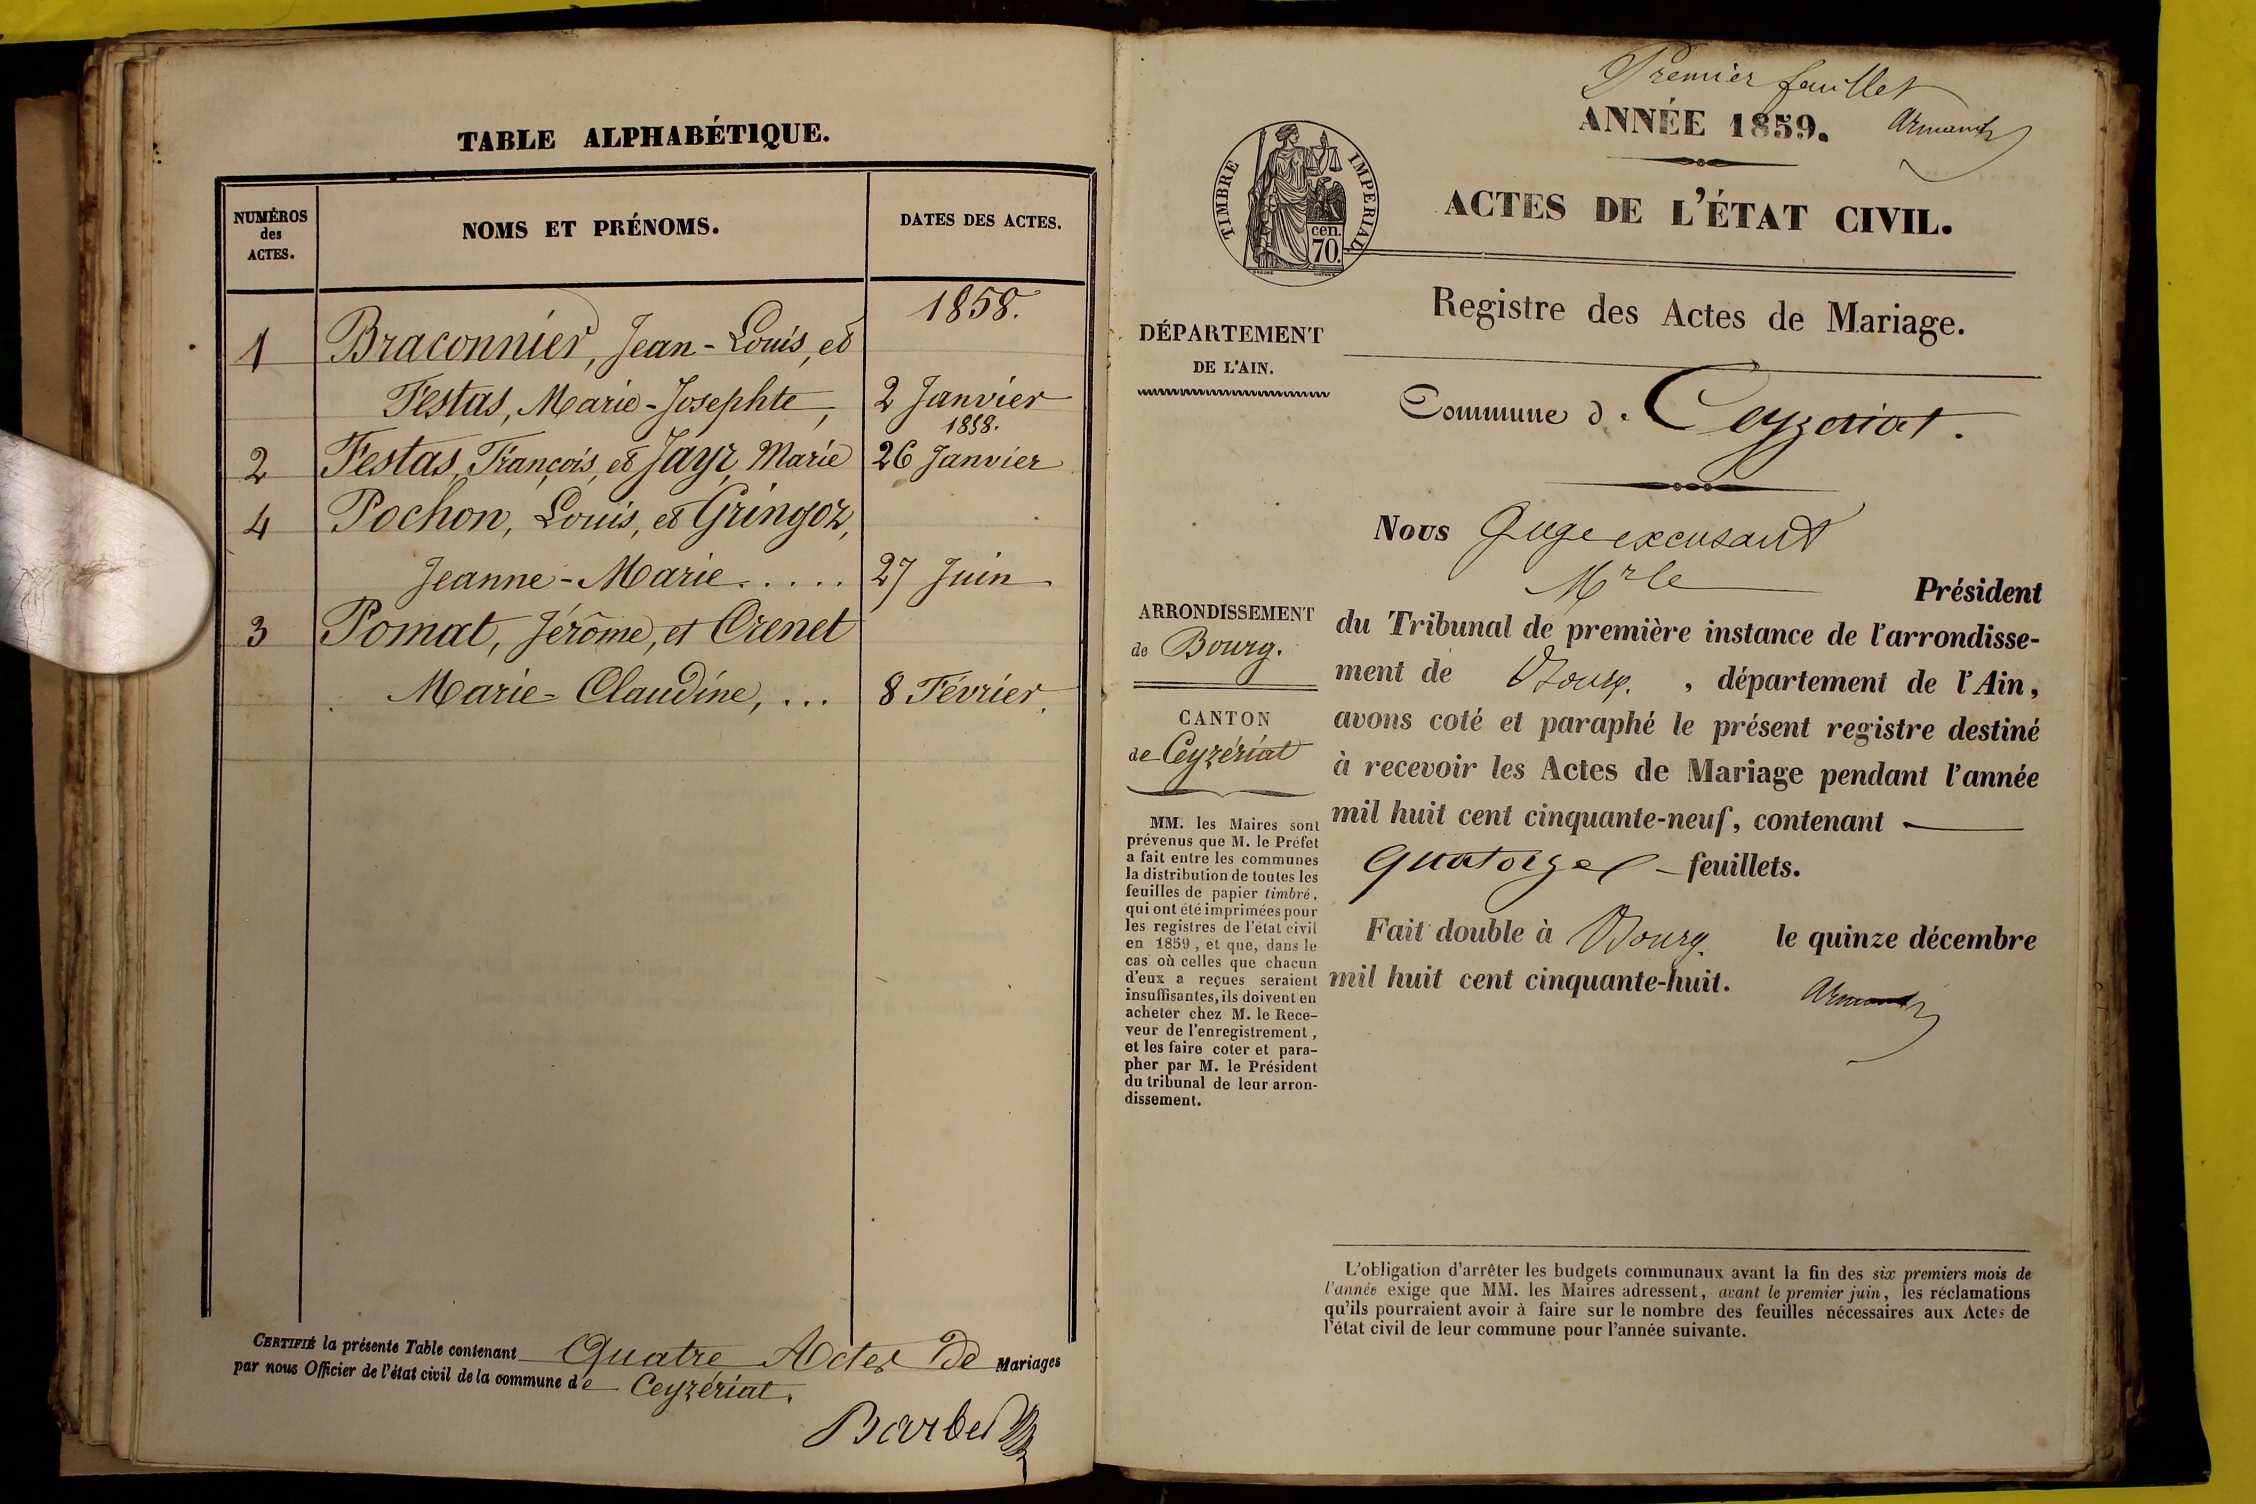 TABLE ALPHABÉTIQUE.
NUMÉROS
des
ACTES.
NOMS ET PRÉNOMS.
DATES DES ACTES.
1858.
1 Braconnier, Jean-Louis, et
Festas, Marie-Josephte, 2 Janvier
1858.
2 Festas, François, et Jayr, Marie 26 Janvier
4 Pochon, Louis, et Gringoz,
Jeanne-Marie..... 27 Juin
3 Pomat, Jérôme, et Crenet
Marie-Claudine, ... 8 Février.
CERTIFIÉ la présente Table contenant Quatre Actes de Mariages
par nous Officier de l'état civil de la commune de Ceyzériat.
Barbe
Premier feuillet
ANNÉE 1859.
Armand
TIMBRE IMPERIAL
cen.
70.
ACTES DE L'ÉTAT CIVIL.
Registre des Actes de Mariage.
DÉPARTEMENT
DE L'AIN.
Commune de Ceyzeriat.
Nous Juge excusant
Mr le Président
du Tribunal de première instance de l'arrondisse-
ment de Bourg, département de l'Ain,
avons coté et paraphé le présent registre destiné
à recevoir les Actes de Mariage pendant l'année
mil huit cent cinquante-neuf, contenant
quatorze feuillets.
Fait double à Bourg. le quinze décembre
mil huit cent cinquante-huit.
Armand
ARRONDISSEMENT
de Bourg.
CANTON
de Ceyzériat
MM. les Maires sont
prévenus que M. le Préfet
a fait entre les communes
la distribution de toutes les
feuilles de papier timbré,
qui ont été imprimées pour
les registres de l'état civil
en 1859, et que, dans le
cas où celles que chacun
d'eux a reçues seraient
insuffisantes, ils doivent en
acheter chez M. le Rece-
veur de l'enregistrement,
et les faire coter et para-
pher par M. le Président
du tribunal de leur arron-
dissement.
L'obligation d'arrêter les budgets communaux avant la fin des six premiers mois de
l'année exige que MM. les Maires adressent, avant le premier juin, les réclamations
qu'ils pourraient avoir à faire sur le nombre des feuilles nécessaires aux Actes de
l'état civil de leur commune pour l'année suivante.